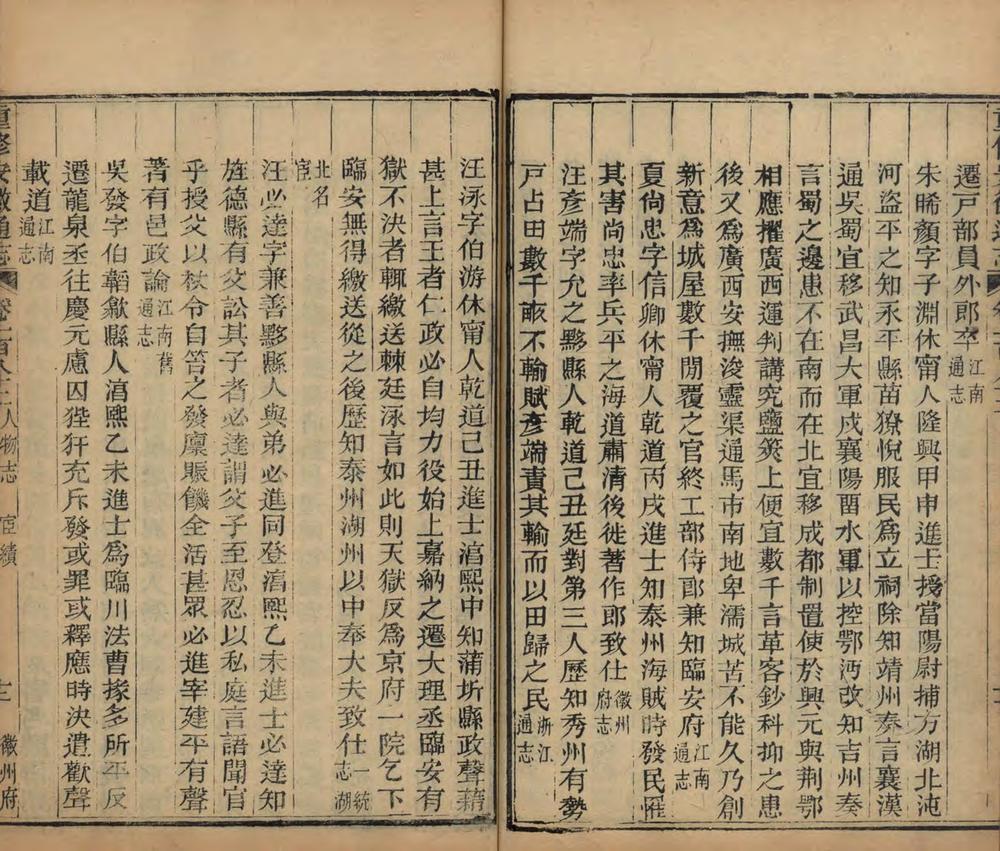 遷戸部員外郎卒江南通志
朱晞顏字子淵休甯人隆興甲申進士授當陽尉捕方湖北沌
河盜平之知永平縣苗獠悅服民爲立祠除知靖州奏言襄漢
通吳蜀宜移武昌大軍戍襄陽畱水軍以控鄂沔改知吉州奏
言蜀之邊患不在南而在北宜移成都制置使於興元與荆鄂
相應擢廣西運判講究鹽筴上便宜數千言革客鈔科抑之患
後又爲廣西安撫浚靈渠通馬市南地卑濡城苦不能久乃創
新意爲城屋數千閒覆之官終工部侍郎兼知臨安府江南通志
夏尙忠字信卿休甯人乾道丙戌進士知泰州海賊時發民罹
其害尙忠率兵平之海道肅清後徙著作郎致仕徽州府志
汪彥端字允之黟縣人乾道己丑廷對第三人歷知秀州有勢
戸占田數千畞不輸賦彥端責其輸而以田歸之民浙江通志
汪泳字伯游休甯人乾道己丑進士湻熙中知蒲圻縣政聲藉
甚上言王者仁政必自均力役始上嘉納之遷大理丞臨安有
獄不決者輒繳送棘廷泳言如此則天獄反爲京府一院乞下
臨安無得繳送從之後歷知泰州湖州以中奉大夫致仕一統志湖
北名宦
汪必達字兼善黟縣人與弟必進同登湻熙乙未進士必達知
旌德縣有父訟其子者必達謂父子至恩忍以私庭言語聞官
乎授父以杖令自笞之發廩賑饑全活甚眾必進宰建平有聲
著有邑政論江南舊通志
吳發字伯韜歙縣人湻熙乙未進士爲臨川法曹掾多所平反
遷龍泉丞往慶元慮囚狴犴充斥發或罪或釋應時決遣歡聲
載道江南通志
重修安徽通志 卷一百八十二 人物志 宦績 徽州府